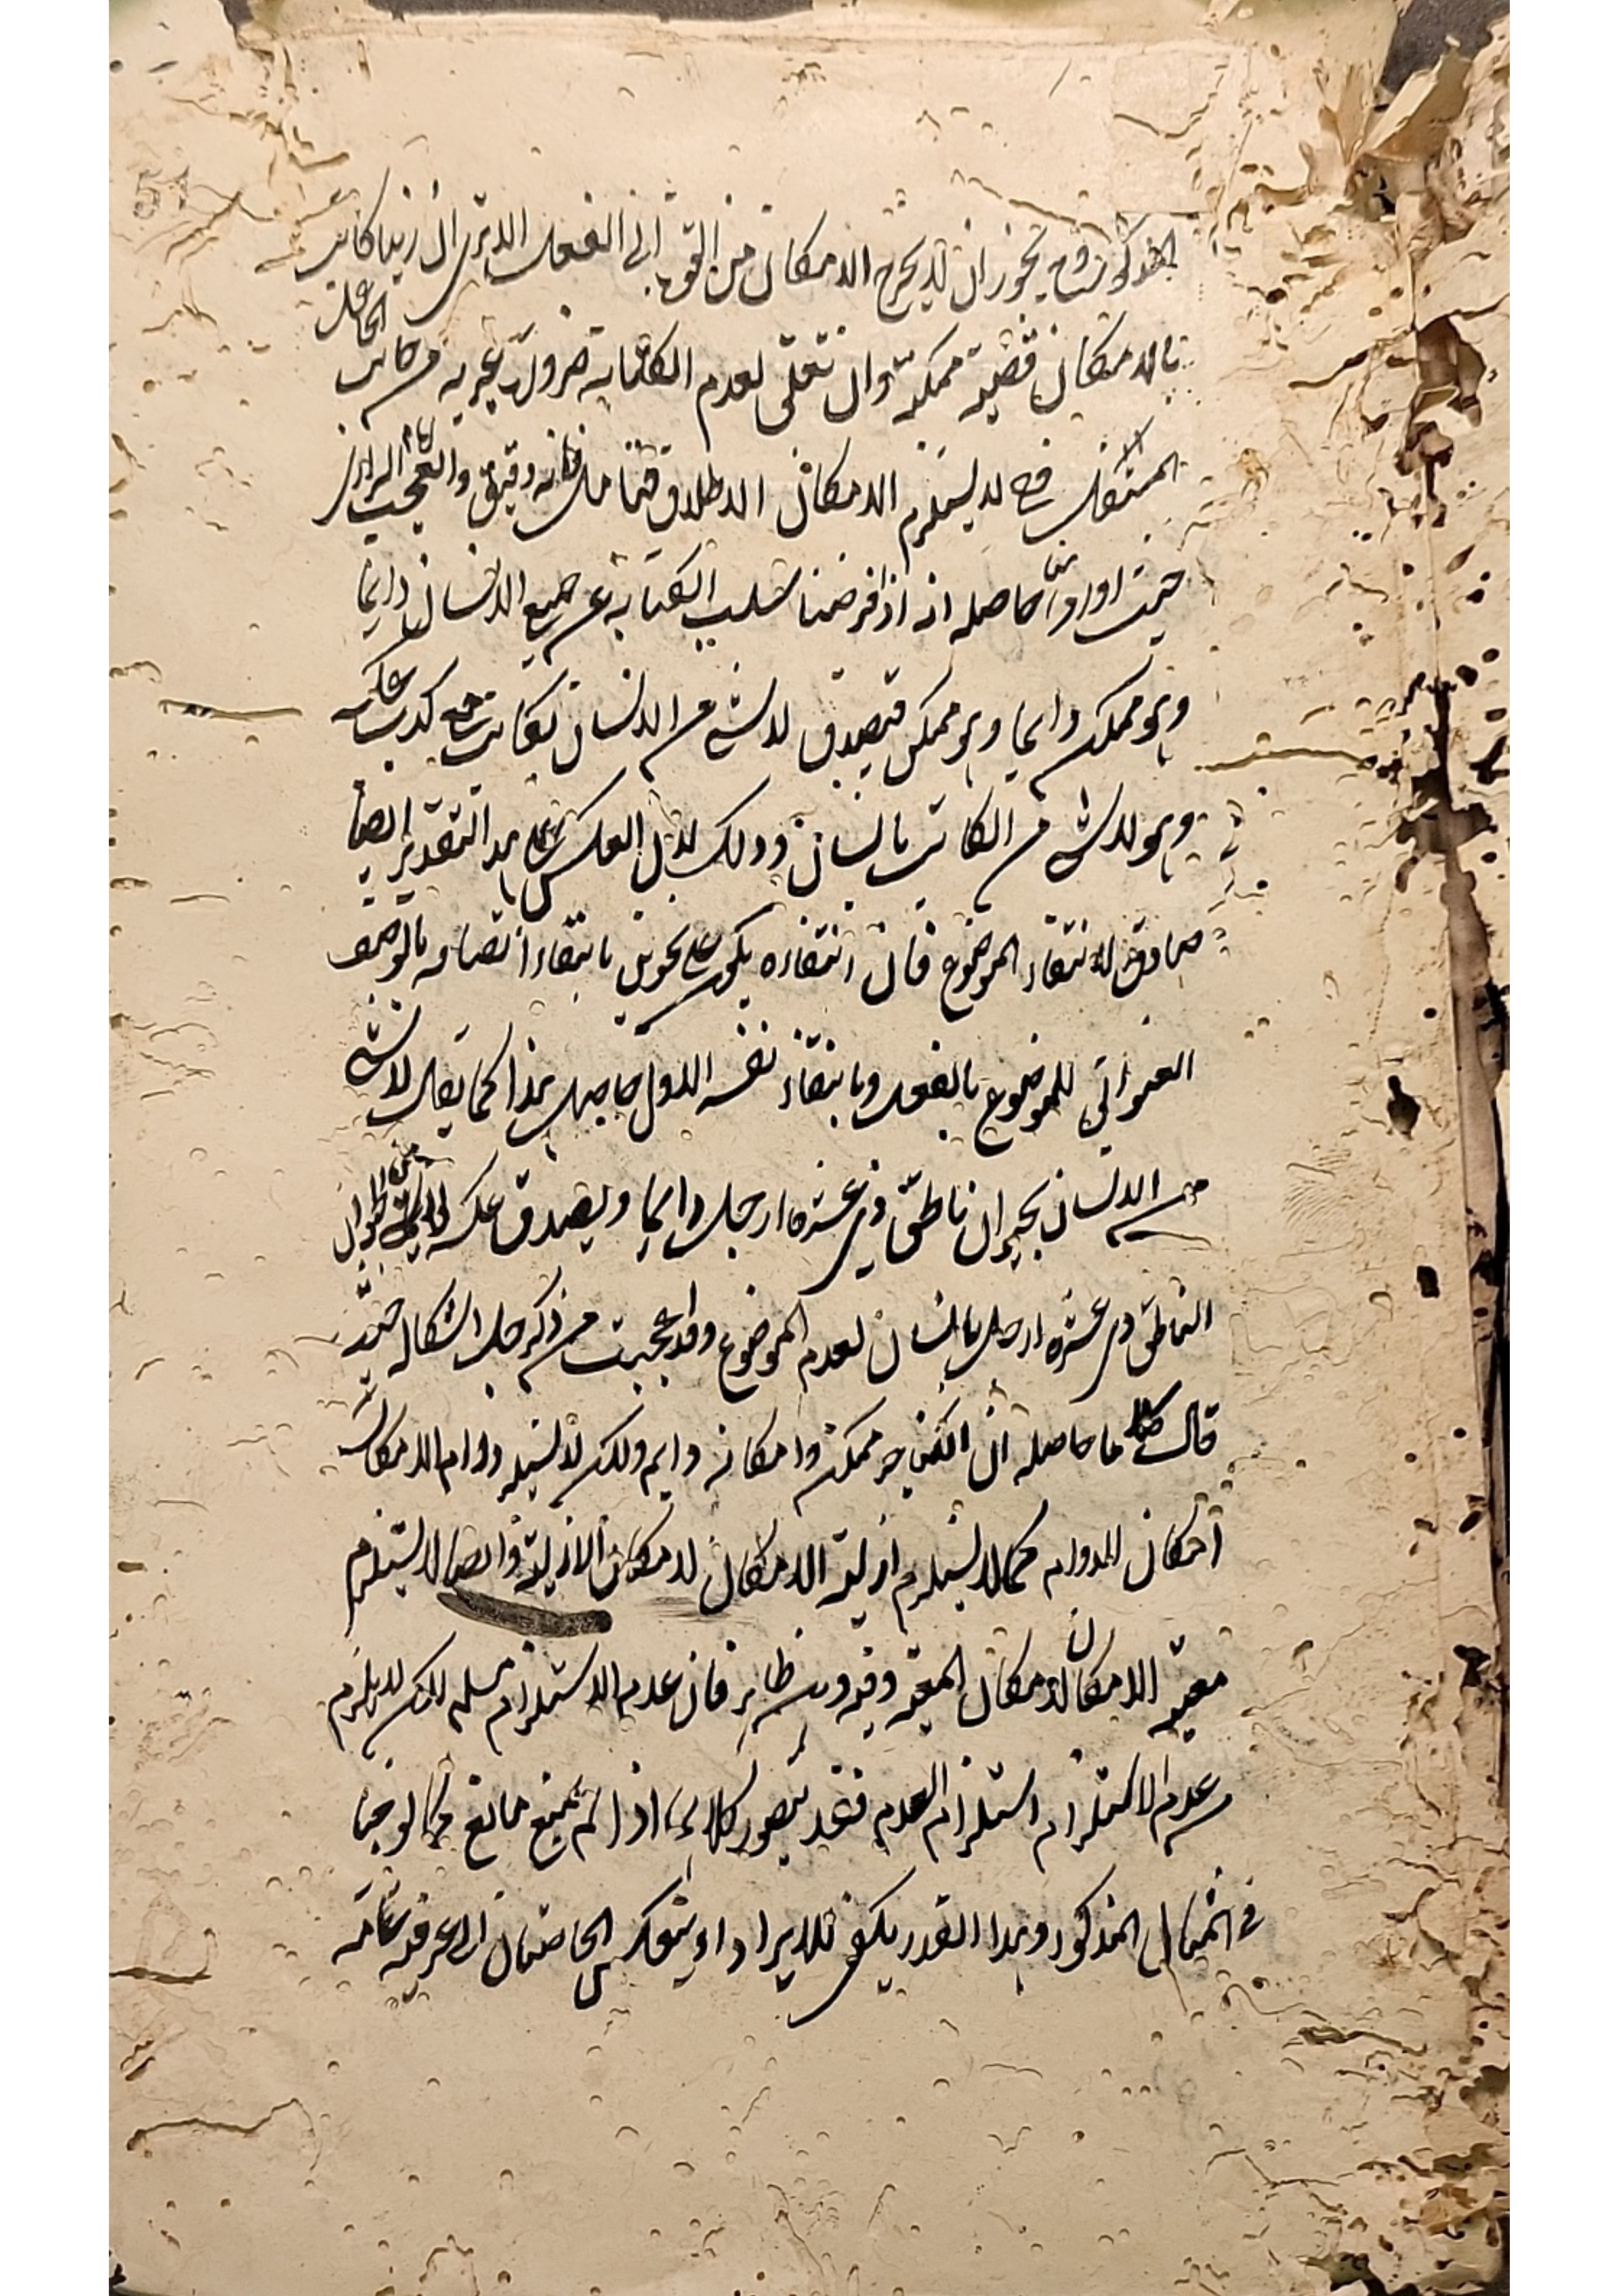 المذكورة وح يجوز ان لا يخرج الامكان من القوة الى الفعل الا ترى ان زيدا كاتب
بالامكان قضية ممكنة وان تعلق لعدم الكتابة ضرورة غيرية في جانب
المستقبل فح لا يستلزم الامكان الاطلاق فتامل فانه دقيق والعجب الرازي
حيث اورد ما حاصله انه اذا فرضنا سلب الكتابة عن جميع الانسان دايما
وهو ممكن دايما وهو ممكن فيصدق لا شئ من الانسان بكاتب مع كذب عكسه
وهو لا شئ من الكاتب بانسان وذلك لان العكس على هذا التقدير ايضا
صادق لانتفاء الموضوع فان انتفاءه يكون على نحوين بانتفاء اتصافه بالوصف
العنواني للموضوع بالفعل وبانتفاء نفسه الاول حاصل هذا كما يقال لا شئ
من الانسان بحيوان ناطق ذي عشرة ارجل دايما ويصدق عكسه لا شئ من الحيوان
الناطق ذى عشرة ارجل بانسان لعدم الموضوع وقد عجبت من ذكر حل اشكاله حيث
قال ما حاصله ان الكتابة ممكن وامكانه دايم ولكن لا يستلزم دوام الامكان
امكان الدوام كما لا يستلزم ازلية الامكان لامكان الازلية وايضا لا يستلزم
معية الامكان لامكان المعية وفيه وهن ظاهر فان عدم الاستلزام مسلم لكن لا يلزم
عدم الاستلزام استلزام العدم فقد يتصور كلاهما اذا لم يمنع مانع كما لوحنا
في المثال المذكور وهذا القدر يكفى للايراد او ينعكس الخاصتان الى عرفية عامة